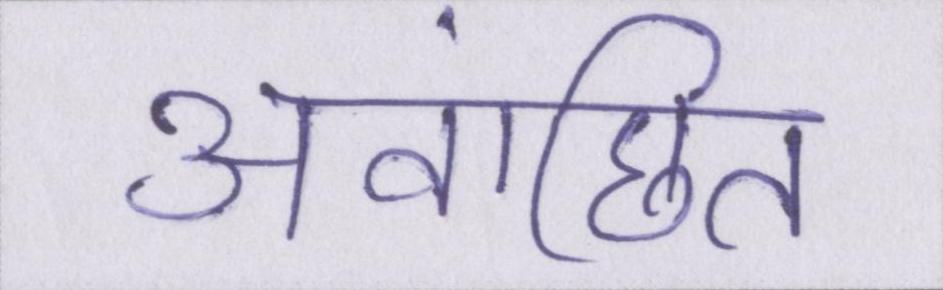 अवांछित